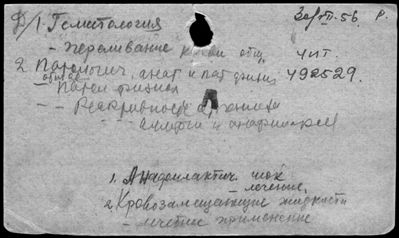 1. Гематология 30/VII-56. Р.
- Переливание крови общ. чит.
2. Патологич. анат. и пат. физиол 492529.
общая
- Патол физиол
- - Реактивность организма
1. Анафилактич. шок
- лечение.
2. Кровозамещающие жидкости
- лечебное применение